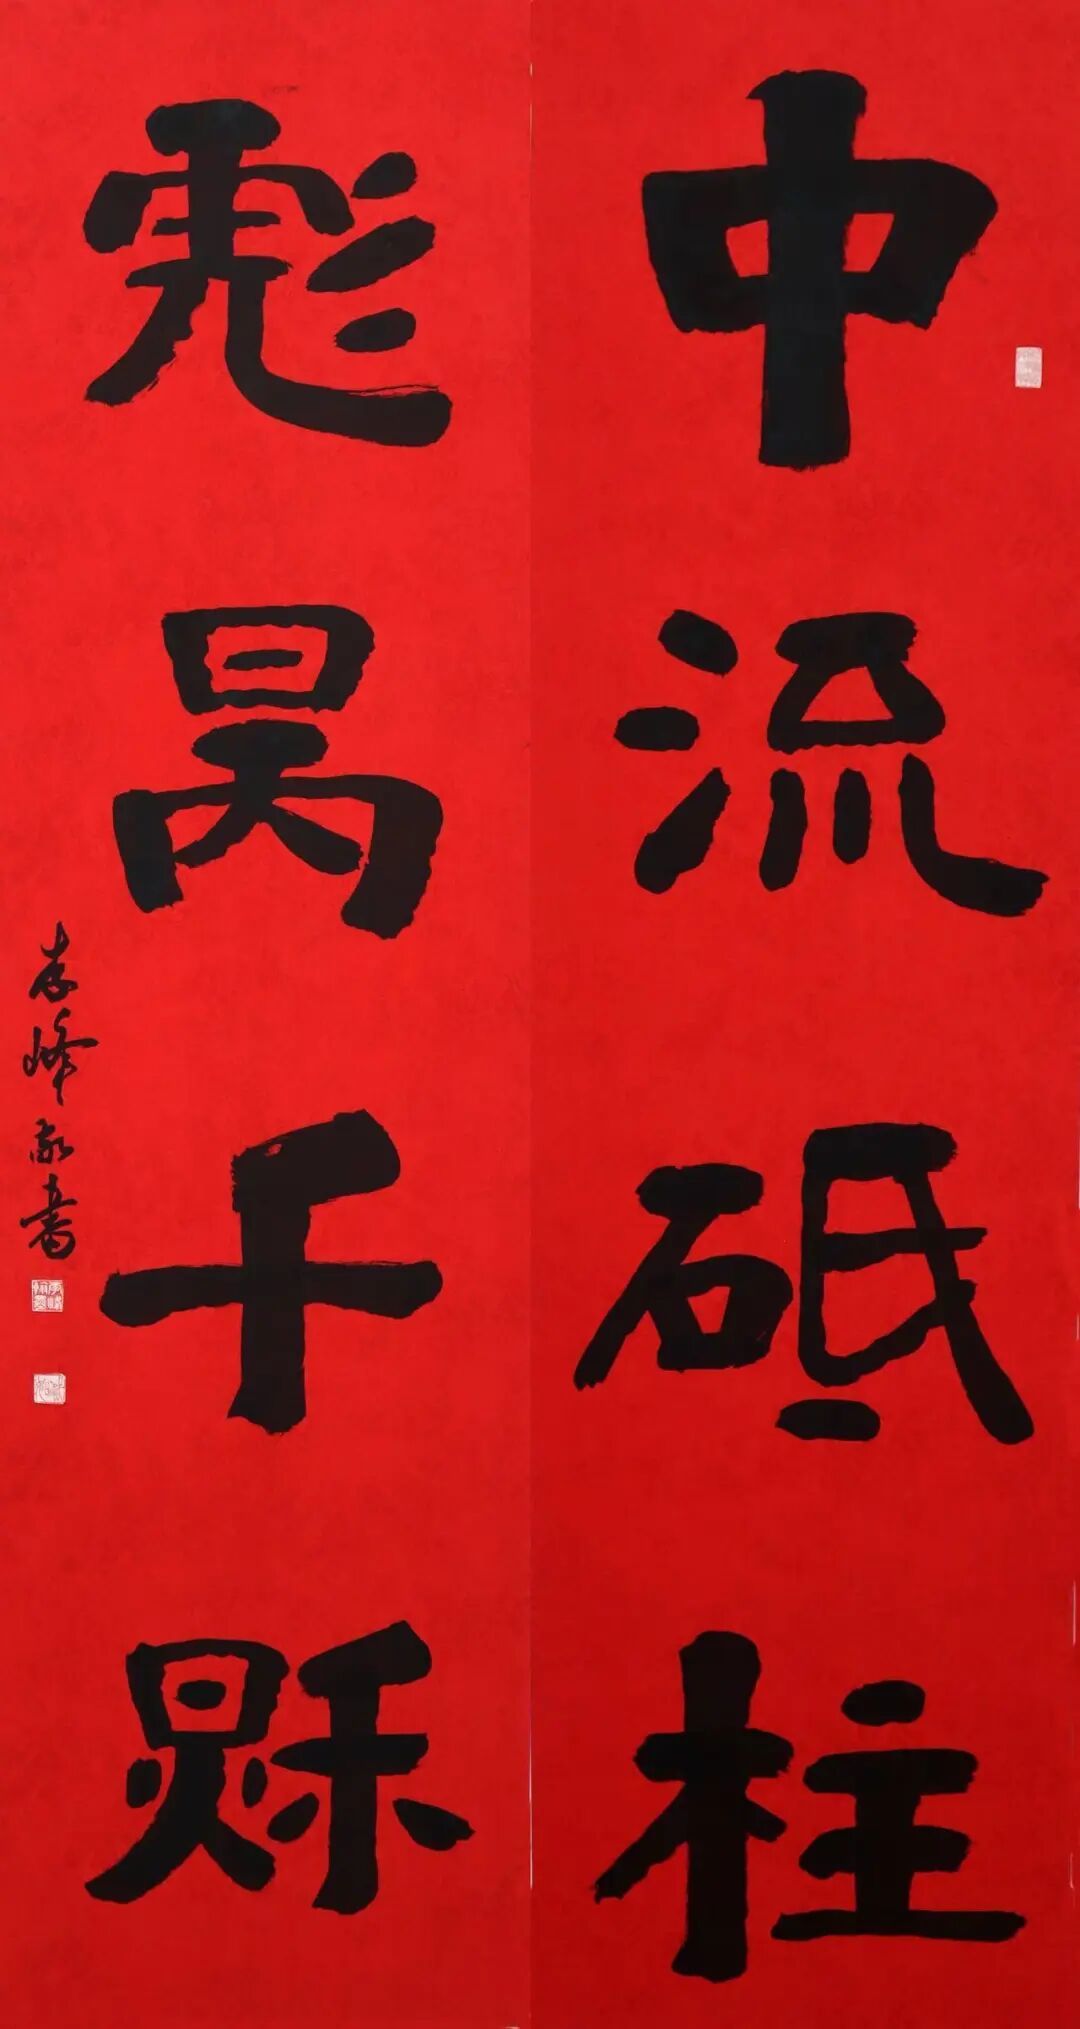 中流砥柱
彪昺千秋
峰敬書